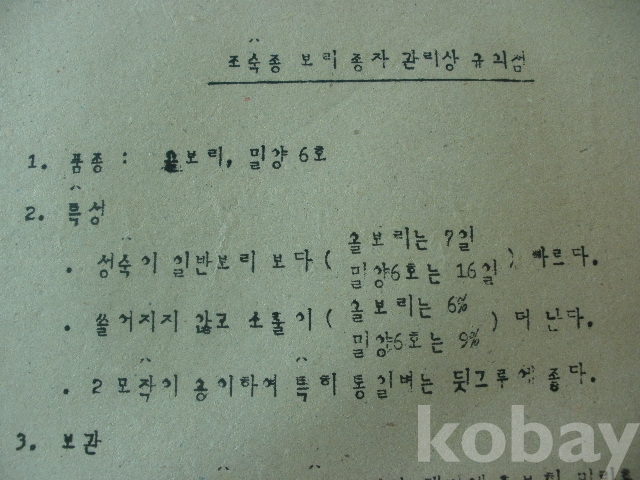 조숙종 보리 종자 관리상 규의점
1. 품종 : 올보리, 밀양 6호
2. 특성
. 성숙이 일반보리 보다 ( 올보리는 7일
밀양6호는 16일 ) 빠르다.
. 쓸어지지 않고 소출이 ( 올보리는 6%
밀양6호는 9% ) 더 난다.
. 2모작이 용이하여 특히 통일벼는 뒷그루에 좋다.
3. 보관
kobay